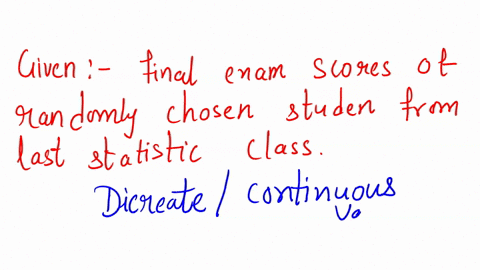 Given:- final exam scores of
randomly chosen studen from
last statistic class.
Dicreate / continuous
Va